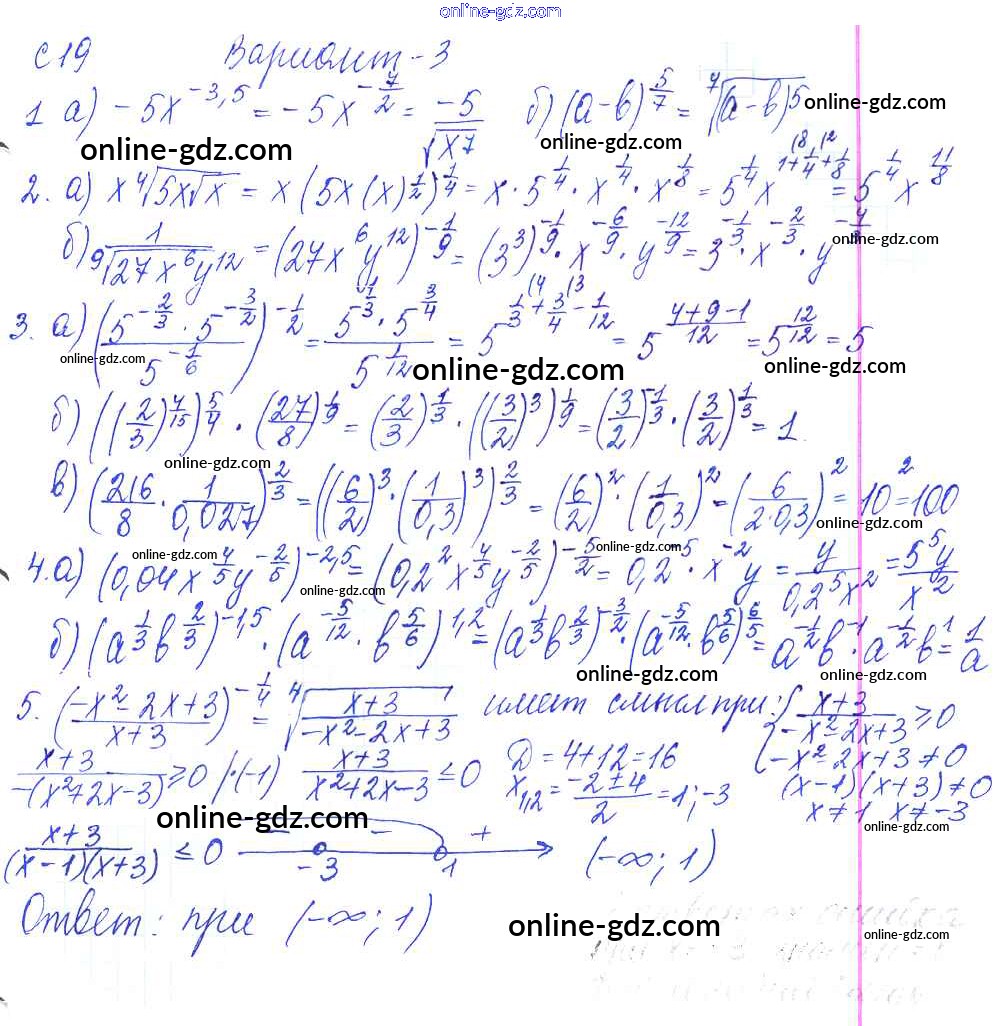 online-gdz.com
С 19 Вариант-3
1 а) -5x^{-3,5} = -5x^{-7/2} = -5/√(x^7) б) (a-b)^{5/7} = ⁷√((a-b)^5) online-gdz.com
online-gdz.com online-gdz.com
2. а) x ⁴√(5x√x) = x(5x(x)^{1/2})^{1/4} = x · 5^{1/4} · x^{1/4} · x^{1/8} = 5^{1/4} x^{1+1/4+1/8} = 5^{1/4} x^{11/8}
б) 1/⁹√(27x^6y^{12}) = (27x^6y^{12})^{-1/9} = (3^3)^{-1/9} · x^{-6/9} · y^{-12/9} = 3^{-1/3} · x^{-2/3} · y^{-4/3} online-gdz.com
3. а) ((5^{-2/3} · 5^{-3/2})/5^{-1/6})^{-1/2} = (5^{1/3} · 5^{3/4})/5^{1/12} = 5^{1/3+3/4-1/12} = 5^{(4+9-1)/12} = 5^{12/12} = 5
online-gdz.com online-gdz.com online-gdz.com
б) ((2/3)^{4/15})^{5/4} · (27/8)^{1/9} = (2/3)^{1/3} · ((3/2)^3)^{1/9} = (3/2)^{-1/3} · (3/2)^{1/3} = 1.
online-gdz.com
в) (216/8 · 1/0,027)^{2/3} = ((6/2)^3 · (1/0,3)^3)^{2/3} = (6/2)^2 · (1/0,3)^2 = (6/(2·0,3))^2 = 10^2 = 100
online-gdz.com
online-gdz.com online-gdz.com
4. а) (0,04x^{4/5}y^{-2/5})^{-2,5} = (0,2^2 x^{4/5} y^{-2/5})^{-5/2} = 0,2^{-5} · x^{-2} y = y/(0,2^5x^2) = 5^5y/x^2
online-gdz.com
б) (a^{1/3}b^{2/3})^{-1,5} · (a^{-5/12} · b^{5/6})^{1,2} = (a^{1/3}b^{2/3})^{-3/2} · (a^{-5/12} · b^{5/6})^{6/5} = a^{-1/2}b^{-1} · a^{-1/2}b^1 = 1/a
online-gdz.com
5. ((-x^2-2x+3)/(x+3))^{-1/4} = ⁴√((x+3)/(-x^2-2x+3)) имеет смысл при: { (x+3)/(-x^2-2x+3) ≥ 0
online-gdz.com
(x+3)/(-(x^2+2x-3)) ≥ 0 |·(-1) (x+3)/(x^2+2x-3) ≤ 0 D = 4+12 = 16 -x^2-2x+3 ≠ 0
x_{1,2} = (-2±4)/2 = 1; -3 (x-1)(x+3) ≠ 0
x ≠ 1 x ≠ -3
online-gdz.com online-gdz.com
(x+3)/((x-1)(x+3)) ≤ 0 - - + -3 1 (-∞; 1)
Ответ: при (-∞; 1)
online-gdz.com online-gdz.com